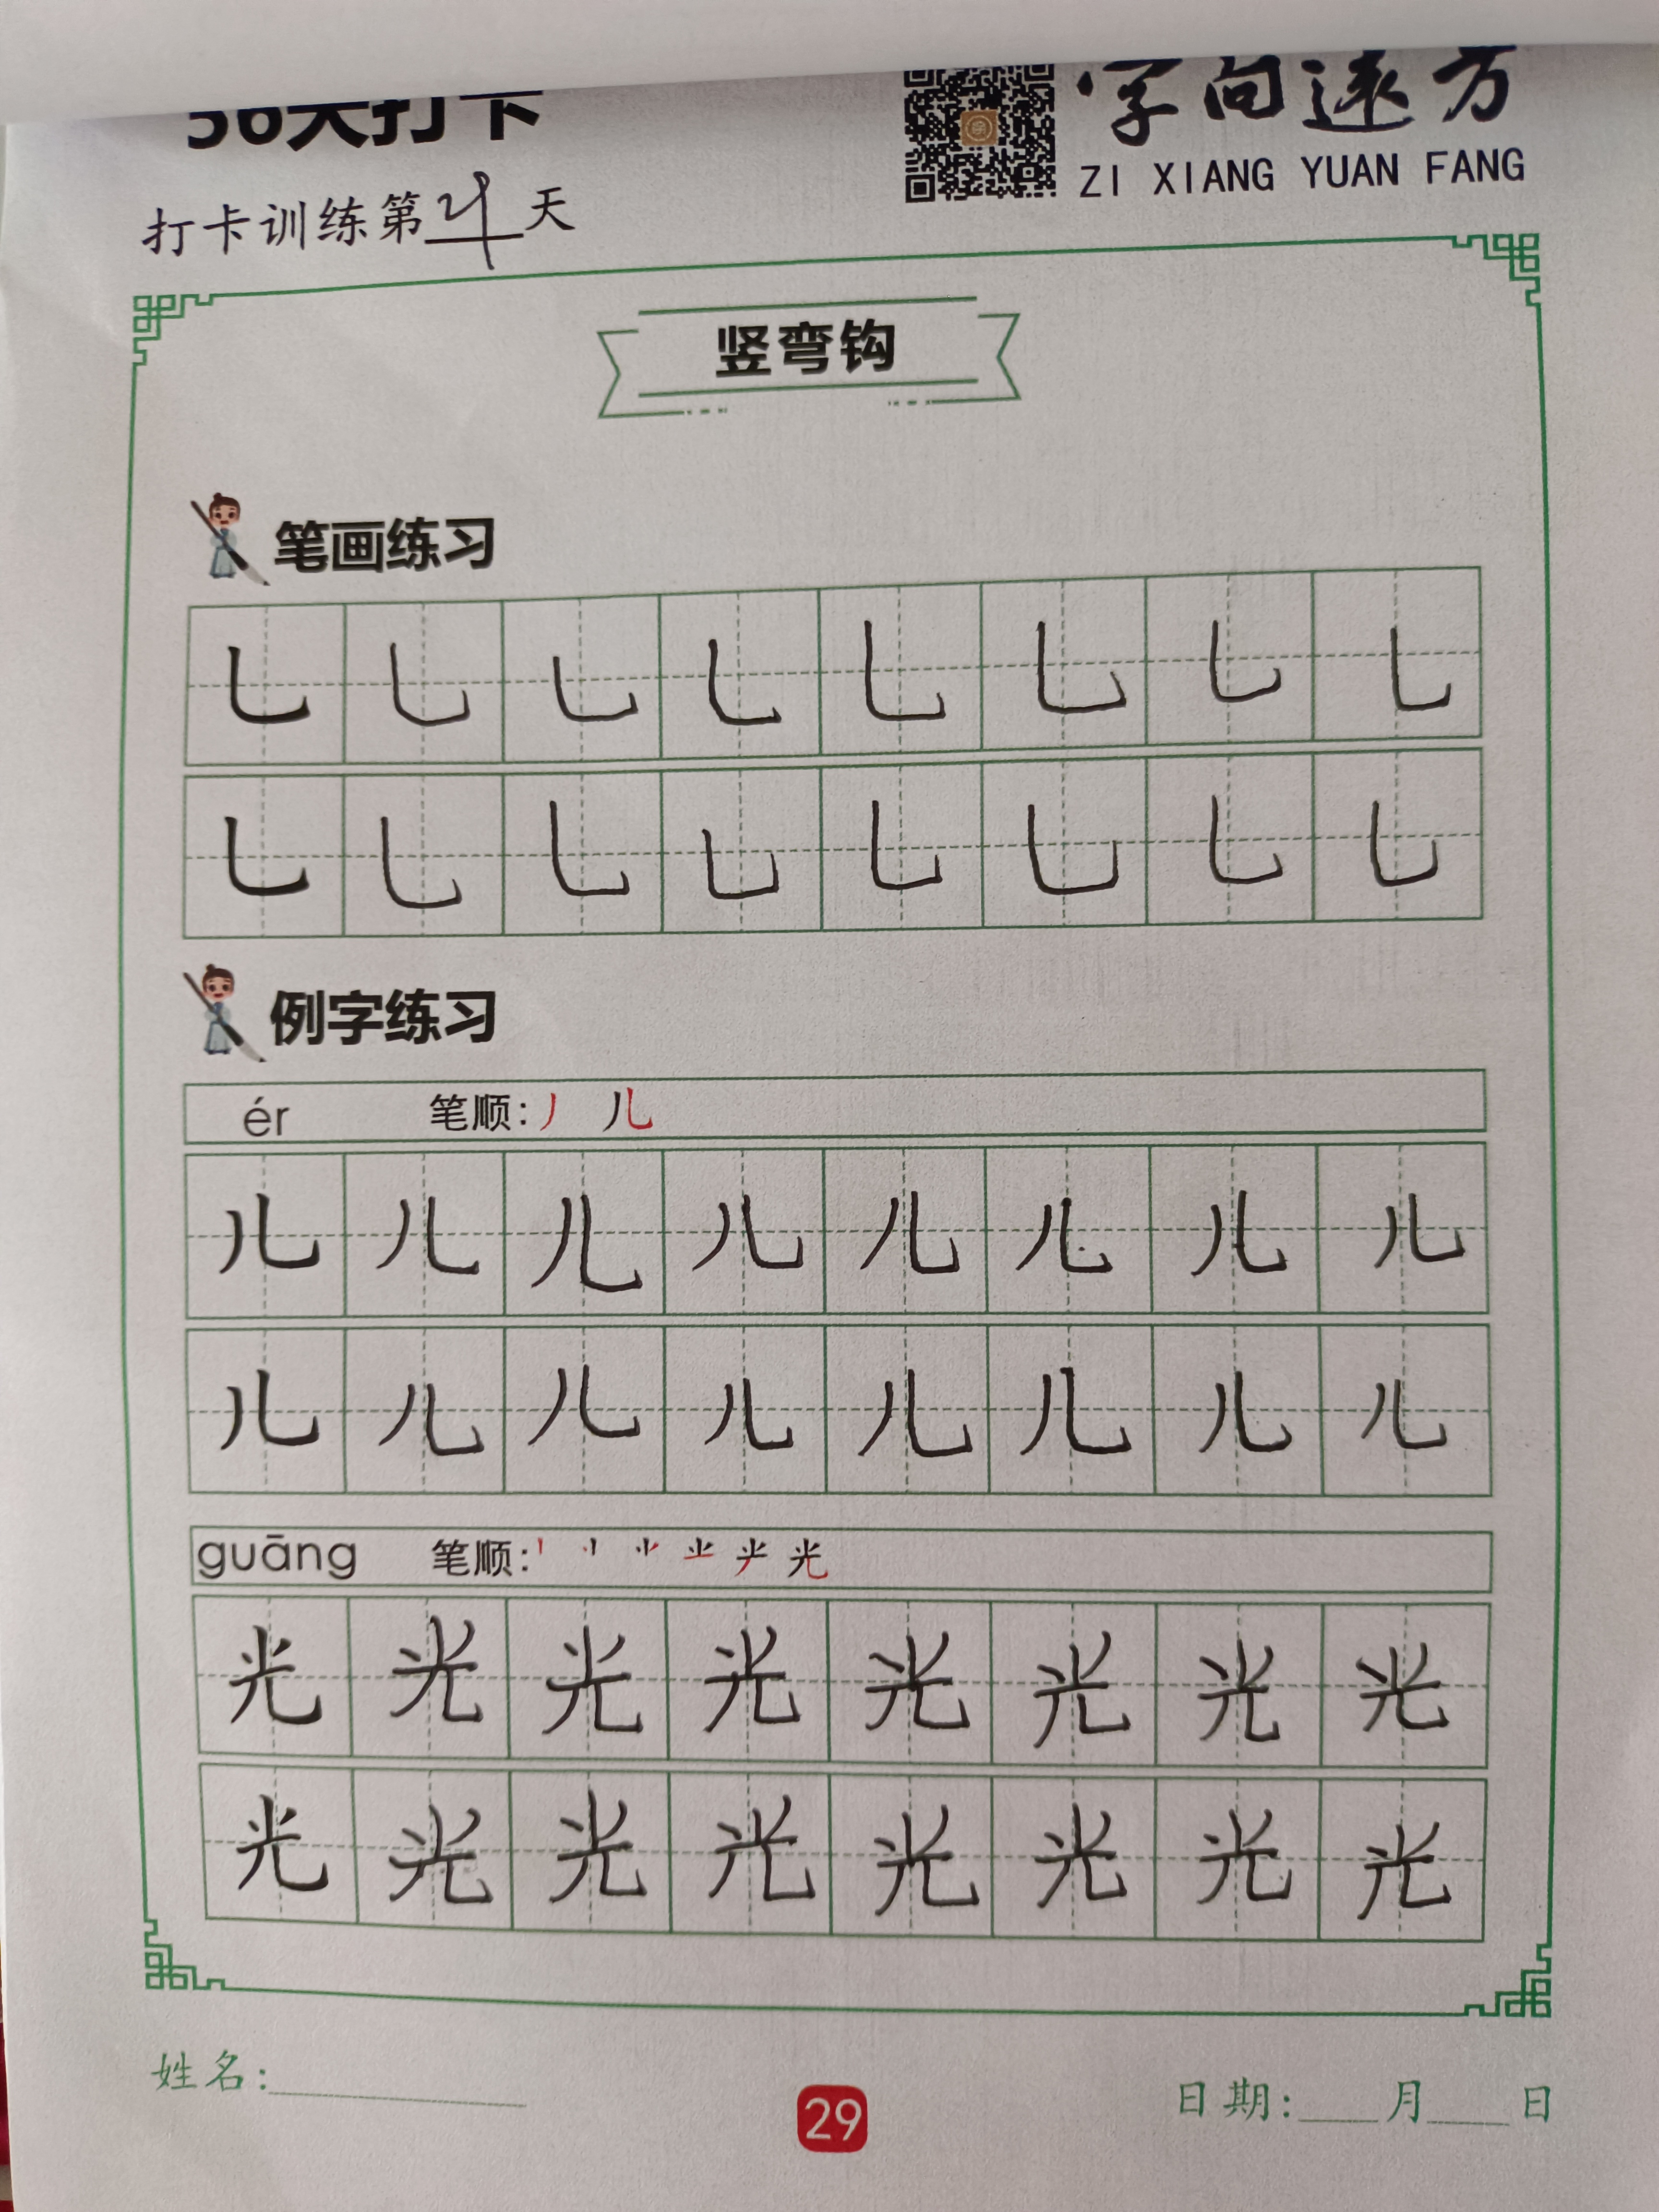 36天打卡
字向远方
ZI XIANG YUAN FANG
打卡训练第 天
竖弯钩
笔画练习
乚 乚 乚 乚 乚 乚 乚 乚
乚 乚 乚 乚 乚 乚 乚 乚
例字练习
ér 笔顺: 丿 儿
儿 儿 儿 儿 儿 儿 儿 儿
儿 儿 儿 儿 儿 儿 儿 儿
guāng 笔顺: 光
光 光 光 光 光 光 光 光
光 光 光 光 光 光 光 光
姓名:
29
日期: 月 日